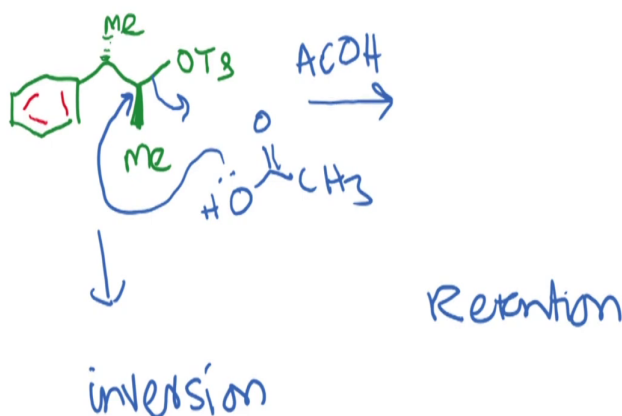 Me
OTs
ACOH
Me
O
HO
CH3
Retention
inversion